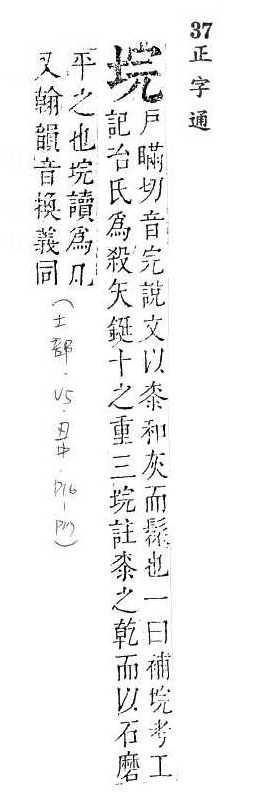 37 正字通
垸
戶瞞切音完說文以桼和灰而髹也一曰補垸考工
記冶氏爲殺矢鋌十之重三垸註桼之乾而以石磨
平之也垸讀爲丸
又翰韻音換義同
(土部·V5·丑中·P16-P17)